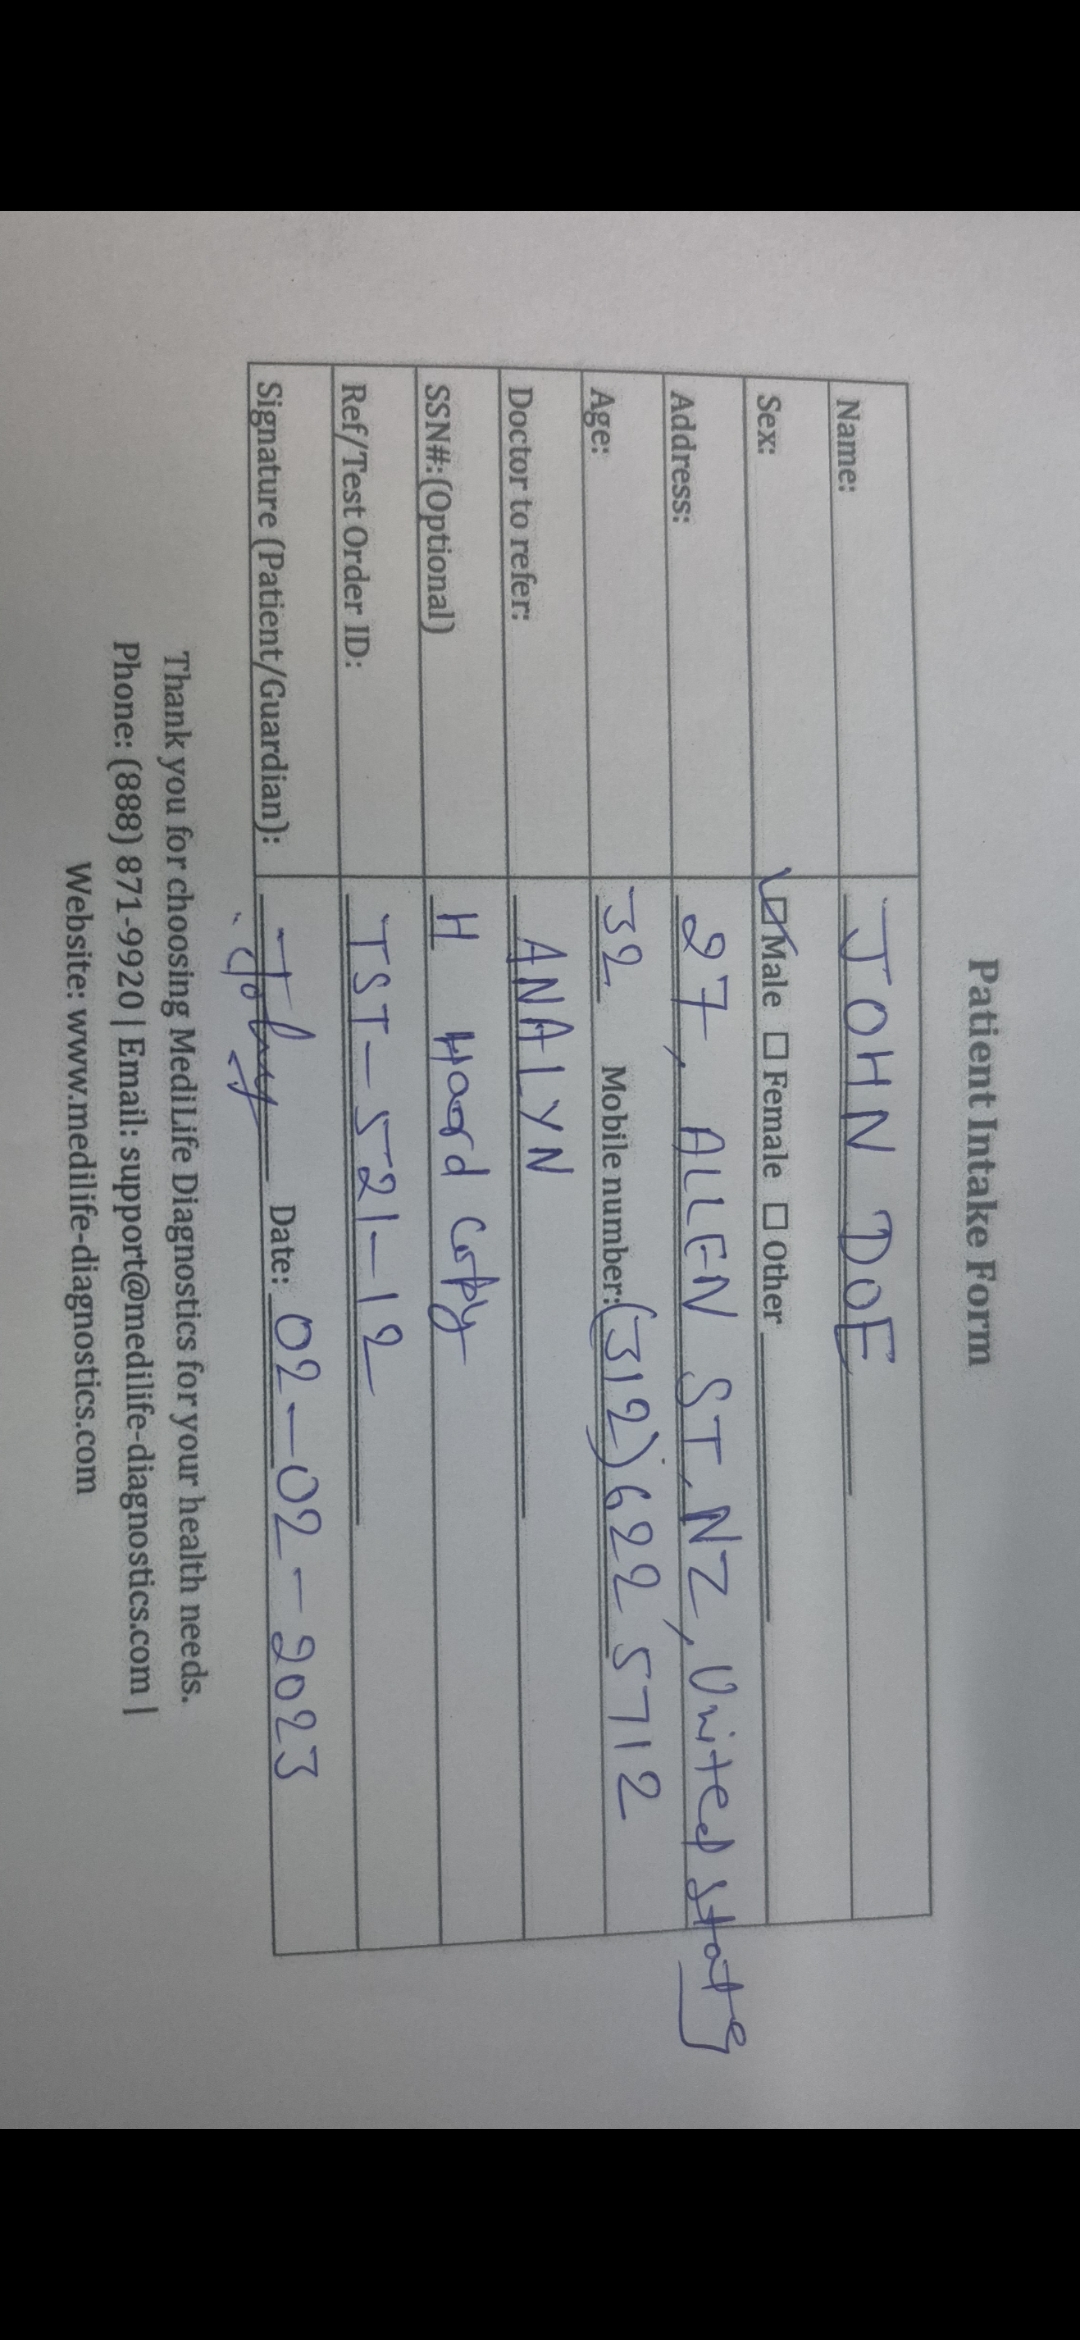 Patient Intake Form
Name: JOHN DOE
Sex: ☑ Male ☐ Female ☐ Other
Address: 27, ALLEN ST, NZ, United States
Age: 32 Mobile number: (312) 622 5712
Doctor to refer: ANALYN
SSN#:(Optional) H Hard Copy
Ref/Test Order ID: TST-521-12
Signature (Patient/Guardian): Date: 02-02-2023
Thank you for choosing MediLife Diagnostics for your health needs.
Phone: (888) 871-9920 | Email: support@medilife-diagnostics.com |
Website: www.medilife-diagnostics.com